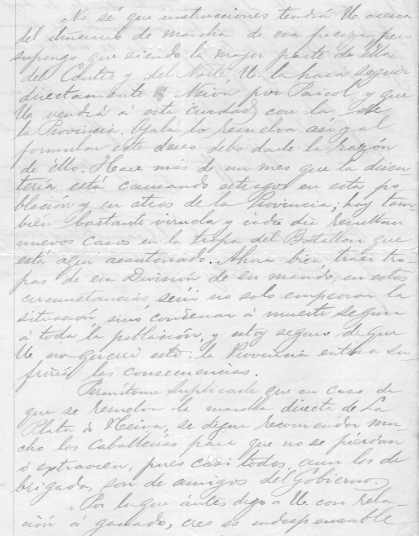 No sé que instrucciones tendrá Ud. acerca
del itinerario de marcha de esa fuerza, pero
supongo que siendo la mayor parte de ellas
del Centro y del Norte, Ud. la hará seguir
directamente á Neiva por Paicol y que
Ud. vendrá á esta ciudad con la de
la Provincia. Ojala lo resuelva así y al
formular este deseo debo darle la razón
de ello. Hace más de un mes que la disen
tería está causando estragos en esta po
blación y en otras de la Provincia; hay tam
bién bastante viruela y cada día resultan
nuevos casos en la tropa del Batallón que
está aquí acantonado. Ahora bien traer tro
pas de esa División de su mando, en estas
circunstancias, sería no solo empeorar la
situación, sino condenar á muerte segura
á toda la población, y estoy seguro de que
Ud. no querrá esto. la Provincia entera su
friría las consecuencias.
Permítame suplicarle que en caso de
que se resuelva la marcha directa de La
Plata á Neiva, se digne recomendar mu
cho las caballerías para que no se pierdan
ó extravíen, pues casi todas, aun las de
brigada, son de amigos del Gobierno.
Por lo que ántes digo á Ud. con rela
ción á ganado, creo es indispensable